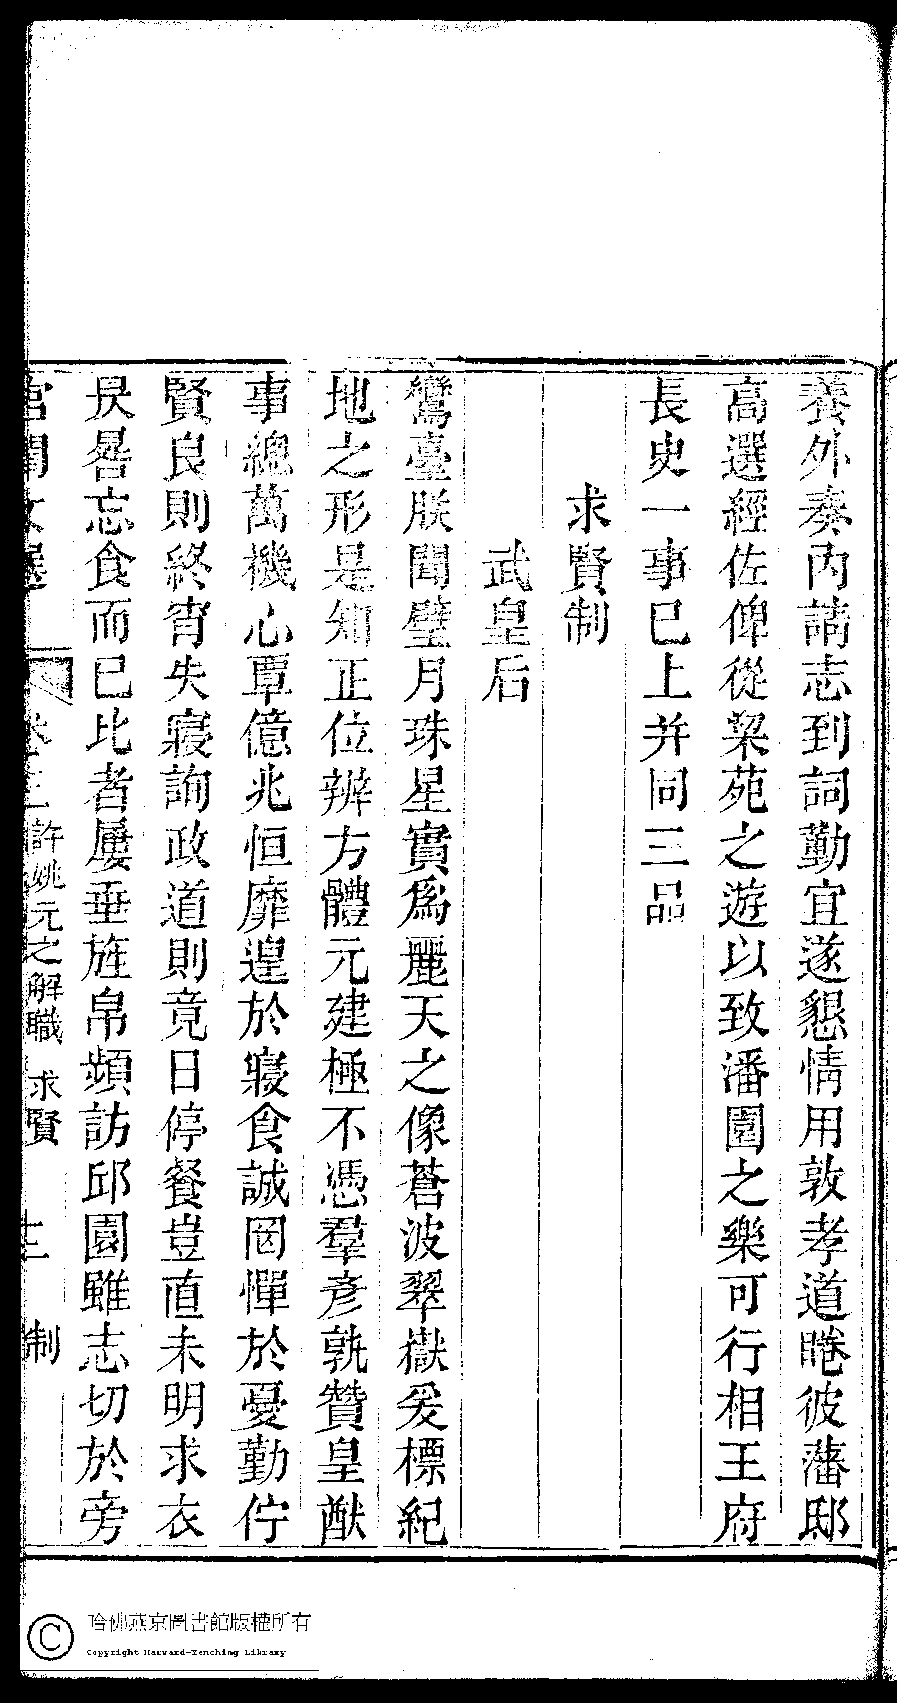 養外奏內請志到詞勤宜遂懇情用敦孝道睠彼藩邸
高選經佐俾從梁苑之遊以致潘園之樂可行相王府
長史一事已上并同三品
求賢制
武皇后
鸞臺朕聞璧月珠星實爲麗天之像蒼波翠嶽爰標紀
地之形是知正位辨方體元建極不憑羣彥孰贊皇猷
事總萬機心覃億兆恒靡遑於寢食誠罔憚於憂勤佇
賢良則終宵失寢詢政道則竟日停餐豈直未明求衣
昃晷忘食而已比者屢垂旌帛頻訪邱園雖志切於旁
宮閨文選 卷十二 許姚元之解職 求賢 十二 制
哈佛燕京圖書館版權所有
Copyright Harvard-Yenching Library